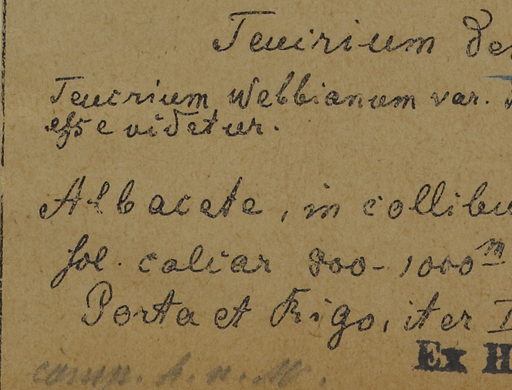 Teucrium de
Teucrium Webbianum var.
esse videtur.
Albacete, in collibu
sol. calcar 800-1000 m
Porta et Rigo, iter I
Ex H
comp. A. n. M.